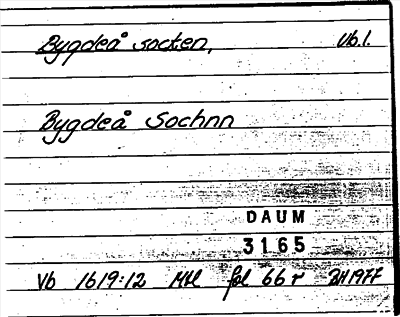 Bygdeå socken, Vb.l.
Bygdeå Sochnn
DAUM
3165
Vb 1619:12 Mtl fol 66 r BH 1977